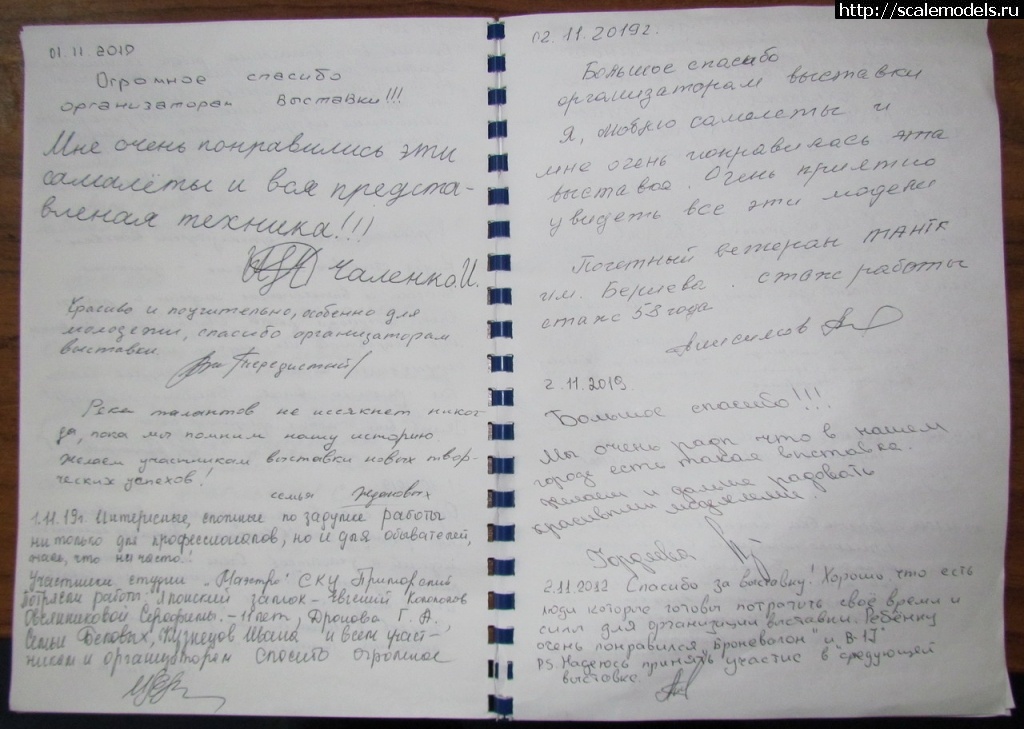 http://scalemodels.ru
01.11.2019
Огромное спасибо
организаторам выставки!!!
Мне очень понравились эти
самалёты и вся предста-
вленая техника!!!
Чаленко И.
Красиво и поучительно, особенно для
молодежи, спасибо организаторам
выставки.
Река талантов не иссякнет никог
да, пока мы помним нашу историю.
Желаем участникам выставки новых твор-
ческих успехов!
семья Ждановых
1.11.19г Интересные, сложные по задумке работы
ни только для профессионалов, но и для обывателей,
жаль, что ни часто!!
Участники студии „Маэстро" СКУ Приморский.
Потрясли работы: Японский замок - Евгений
Серафимы - 11 лет, Дронова Г. А.
Семьи Беловых, Кузнецов Ивана и всем участ-
никам и организаторам спасибо огромное
02.11.2019г.
Большое спасибо
организаторам выставки
Я, люблю самолеты и
мне очень понравилась эта
выставка. Очень приятно
увидеть все эти модели
Почетный ветеран ТАНТК
им. Бериева. стаж работы
стаж 53 года
Анисимов
2.11.2019.
Большое спасибо!!!
Мы очень рады что в нашем
городе есть такая выставка.
Желаем и дальше радовать
красивыми моделями!
Гордеева
2.11.2012 Спасибо за выставку! Хорошо что есть
люди которые готовы потратить своё время и
силы для организации выставки. Ребёнку
очень понравился „Броневагон" и В-17
PS. Надеюсь принять участие в "следующей
выставке.